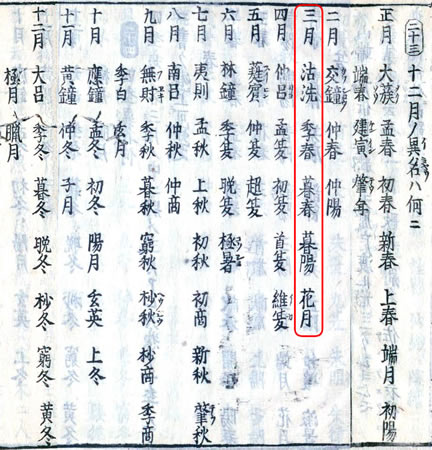 二十三 十二月ノ異名ハ何ニ
正月 大簇 孟春 新春 上春 端月 初陽
端春 建寅 肇年
二月 夾鐘 仲春 仲陽
三月 沽洗 季春 暮春 暮陽 花月
四月 仲呂 孟夏 初夏 首夏 維夏
五月 蕤賓 仲夏 超夏
六月 林鐘 季夏 晩夏 極暑
七月 夷則 孟秋 上秋 初秋 初商 新秋 肇秋
八月 南呂 仲秋 仲商
九月 無射 季秋 暮秋 窮秋 杪秋 杪商 季商
季白 玄月
十月 應鐘 孟冬 初冬 陽月 玄英 上冬
十一月 黄鐘 仲冬 子月
十二月 大呂 季冬 暮冬 晩冬 杪冬 窮冬 黄冬
極月 臘月